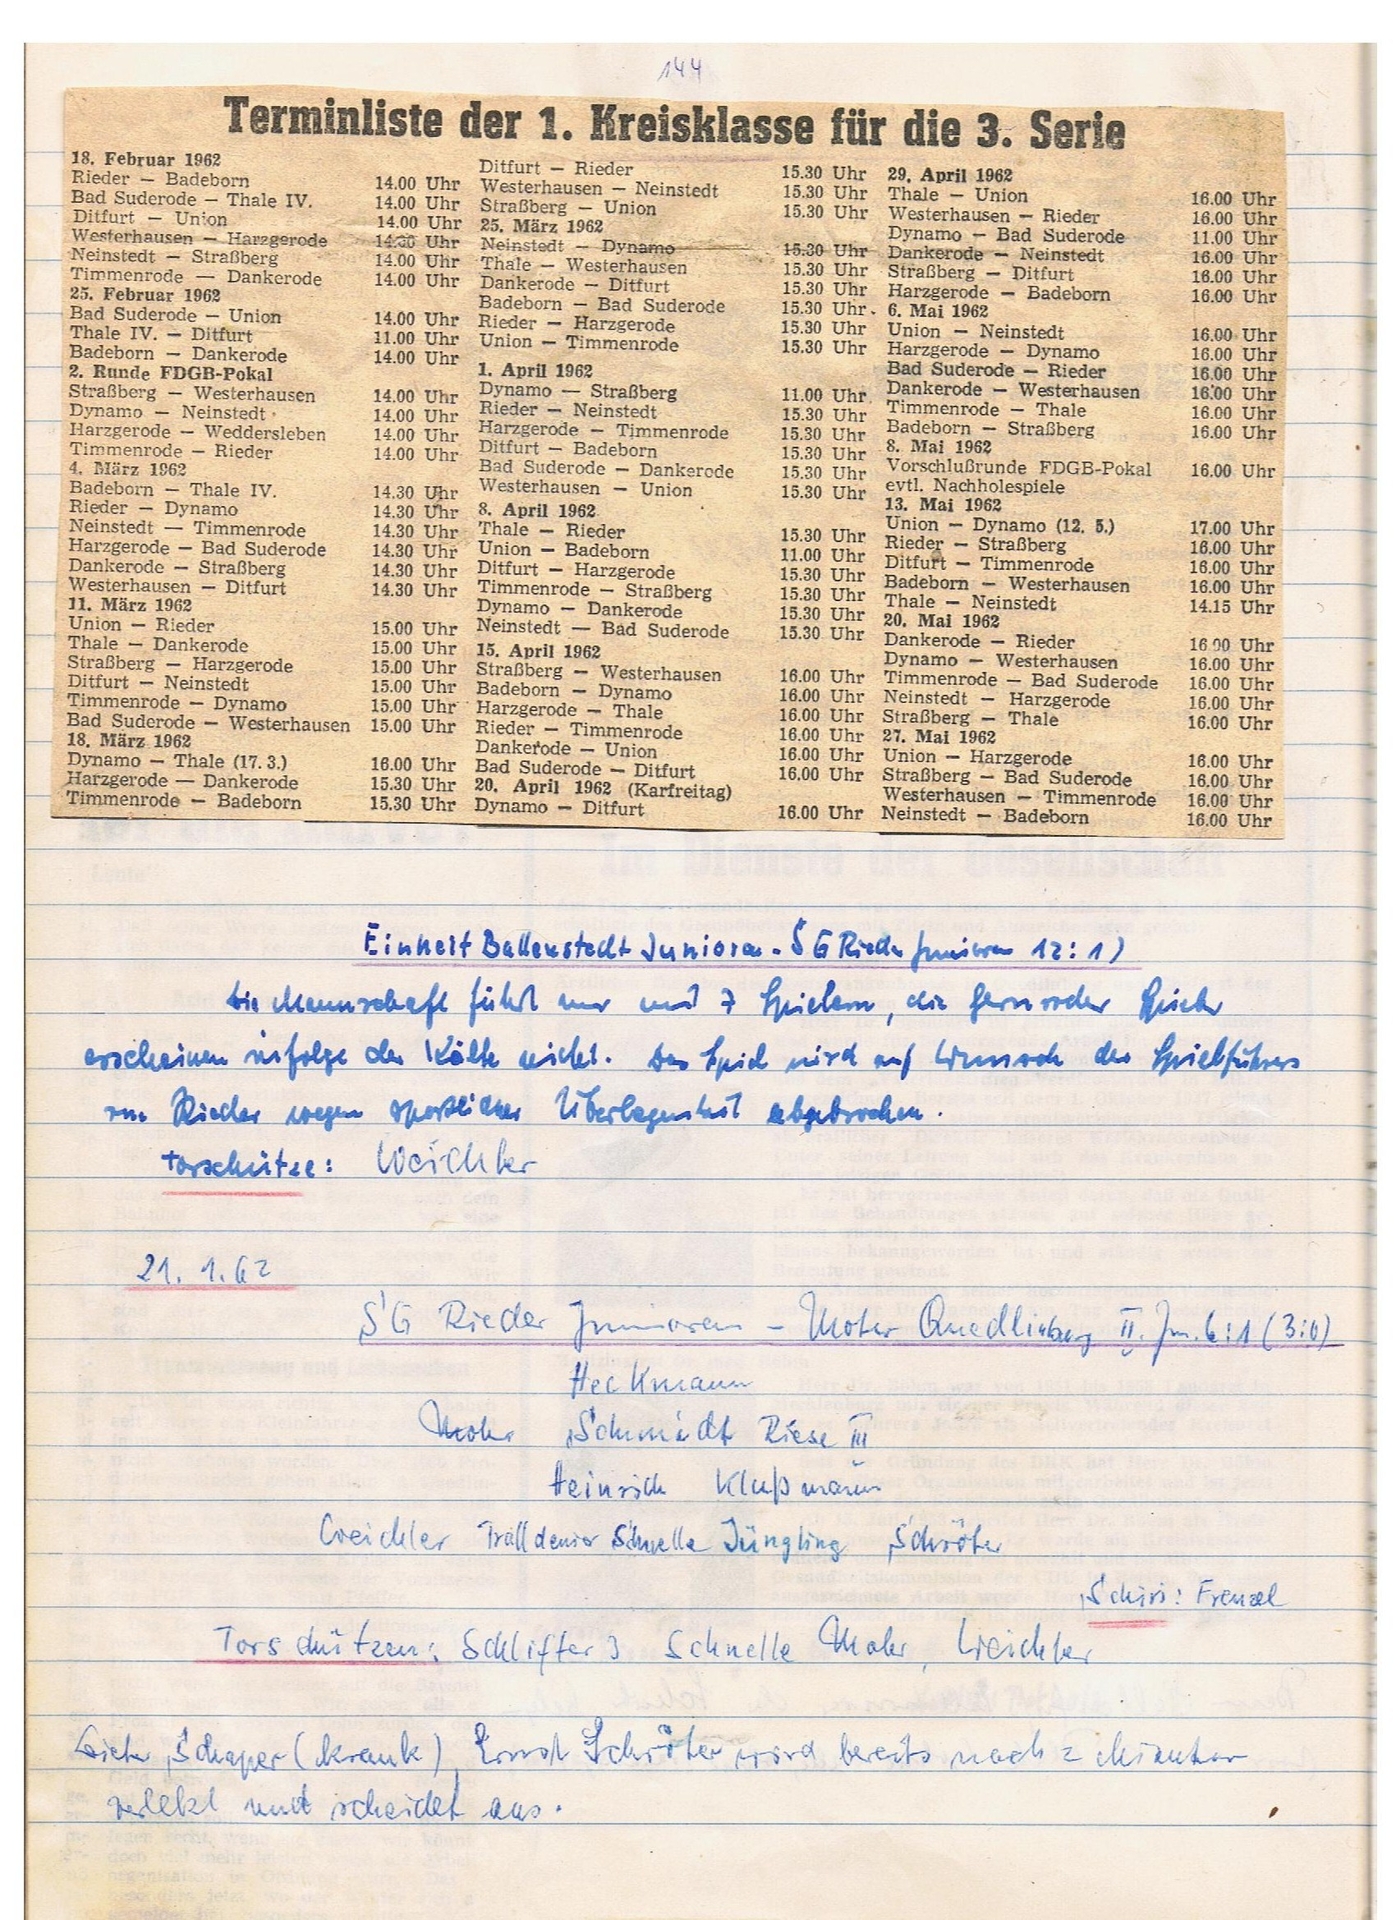 144
Terminliste der 1. Kreisklasse für die 3. Serie
18. Februar 1962
Rieder — Badeborn 14.00 Uhr
Bad Suderode — Thale IV. 14.00 Uhr
Ditfurt — Union 14.00 Uhr
Westerhausen — Harzgerode 14.30 Uhr
Neinstedt — Straßberg 14.00 Uhr
Timmenrode — Dankerode 14.00 Uhr
25. Februar 1962
Bad Suderode — Union 14.00 Uhr
Thale IV. — Ditfurt 11.00 Uhr
Badeborn — Dankerode 14.00 Uhr
2. Runde FDGB-Pokal
Straßberg — Westerhausen 14.00 Uhr
Dynamo — Neinstedt 14.00 Uhr
Harzgerode — Weddersleben 14.00 Uhr
Timmenrode — Rieder 14.00 Uhr
4. März 1962
Badeborn — Thale IV. 14.30 Uhr
Rieder — Dynamo 14.30 Uhr
Neinstedt — Timmenrode 14.30 Uhr
Harzgerode — Bad Suderode 14.30 Uhr
Dankerode — Straßberg 14.30 Uhr
Westerhausen — Ditfurt 14.30 Uhr
11. März 1962
Union — Rieder 15.00 Uhr
Thale — Dankerode 15.00 Uhr
Straßberg — Harzgerode 15.00 Uhr
Ditfurt — Neinstedt 15.00 Uhr
Timmenrode — Dynamo 15.00 Uhr
Bad Suderode — Westerhausen 15.00 Uhr
18. März 1962
Dynamo — Thale (17. 3.) 16.00 Uhr
Harzgerode — Dankerode 15.30 Uhr
Timmenrode — Badeborn 15.30 Uhr
Ditfurt — Rieder 15.30 Uhr
Westerhausen — Neinstedt 15.30 Uhr
Straßberg — Union 15.30 Uhr
25. März 1962
Neinstedt — Dynamo 15.30 Uhr
Thale — Westerhausen 15.30 Uhr
Dankerode — Ditfurt 15.30 Uhr
Badeborn — Bad Suderode 15.30 Uhr
Rieder — Harzgerode 15.30 Uhr
Union — Timmenrode 15.30 Uhr
1. April 1962
Dynamo — Straßberg 11.00 Uhr
Rieder — Neinstedt 15.30 Uhr
Harzgerode — Timmenrode 15.30 Uhr
Ditfurt — Badeborn 15.30 Uhr
Bad Suderode — Dankerode 15.30 Uhr
Westerhausen — Union 15.30 Uhr
8. April 1962
Thale — Rieder 15.30 Uhr
Union — Badeborn 11.00 Uhr
Ditfurt — Harzgerode 15.30 Uhr
Timmenrode — Straßberg 15.30 Uhr
Dynamo — Dankerode 15.30 Uhr
Neinstedt — Bad Suderode 15.30 Uhr
15. April 1962
Straßberg — Westerhausen 16.00 Uhr
Badeborn — Dynamo 16.00 Uhr
Harzgerode — Thale 16.00 Uhr
Rieder — Timmenrode 16.00 Uhr
Dankerode — Union 16.00 Uhr
Bad Suderode — Ditfurt 16.00 Uhr
20. April 1962 (Karfreitag)
Dynamo — Ditfurt 16.00 Uhr
29. April 1962
Thale — Union 16.00 Uhr
Westerhausen — Rieder 16.00 Uhr
Dynamo — Bad Suderode 11.00 Uhr
Dankerode — Neinstedt 16.00 Uhr
Straßberg — Ditfurt 16.00 Uhr
Harzgerode — Badeborn 16.00 Uhr
6. Mai 1962
Union — Neinstedt 16.00 Uhr
Harzgerode — Dynamo 16.00 Uhr
Bad Suderode — Rieder 16.00 Uhr
Dankerode — Westerhausen 16.00 Uhr
Timmenrode — Thale 16.00 Uhr
Badeborn — Straßberg 16.00 Uhr
8. Mai 1962
Vorschlußrunde FDGB-Pokal 16.00 Uhr
evtl. Nachholespiele
13. Mai 1962
Union — Dynamo (12. 5.) 17.00 Uhr
Rieder — Straßberg 16.00 Uhr
Ditfurt — Timmenrode 16.00 Uhr
Badeborn — Westerhausen 16.00 Uhr
Thale — Neinstedt 14.15 Uhr
20. Mai 1962
Dankerode — Rieder 16.00 Uhr
Dynamo — Westerhausen 16.00 Uhr
Timmenrode — Bad Suderode 16.00 Uhr
Neinstedt — Harzgerode 16.00 Uhr
Straßberg — Thale 16.00 Uhr
27. Mai 1962
Union — Harzgerode 16.00 Uhr
Straßberg — Bad Suderode 16.00 Uhr
Westerhausen — Timmenrode 16.00 Uhr
Neinstedt — Badeborn 16.00 Uhr
Einheit Ballenstedt Junioren - SG Rieder Junioren 12:1)
Die Mannschaft fährt nur mit 7 Spielern, die Gernroder Spieler
erscheinen infolge der Kälte nicht. Das Spiel wird auf Wunsch des Spielführers
von Rieder wegen sportlicher Überlegenheit abgebrochen.
Torschütze: Weichler
21. 1. 62
SG Rieder Junioren - Motor Quedlinburg II. Jun. 6:1 (3:0)
Heckmann
Mohr Schmidt Riese III
Heinrich Klußmann
Weichler Schnelle Jüngling Schröter
Schiri: Frenzel
Torschützen: Schlifter 3 Schnelle Mohr, Weichler
Schaper (krank), Ernst Schröter wird bereits nach 2 Minuten
verletzt und scheidet aus.